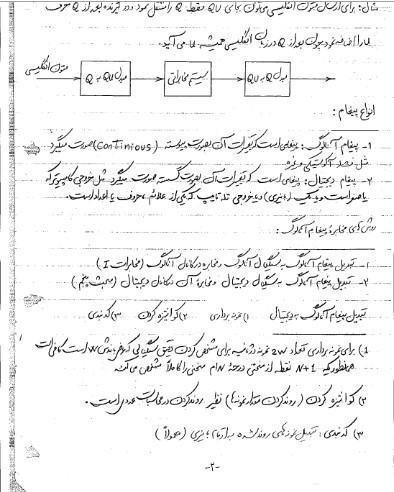 مثال: برای ارسال متون انگلیسی میتوان برای QU فقط Q را منتقل نمود و در گیرنده بعد از Q حرف
U را اضافه نمود چون بعد از Q در زبان انگلیسی همیشه U می‌آید.
متون انگلیسی
مبدل QU به Q
سیستم مخابراتی
مبدل Q به QU
انواع پیغام:
۱- پیغام آنالوگ: پیغامی است که تغییرات آن بصورت پیوسته (Continious) صورت میگیرد
مثل فشار آکوستیکی و غیره
۲- پیغام دیجیتال: پیغامی است که تغییرات آن بصورت گسسته صورت میگیرد مثل خروجی کامپیوتر که
یا صفر است و یا یک (باینری) و یا خروجی تله تایپ که یکی از علائم، حروف یا اعداد است.
روش‌های مخابره پیغام آنالوگ:
۱- تبدیل پیغام آنالوگ به سیگنال آنالوگ و مخابره در کانال آنالوگ (مخابرات I)
۲- تبدیل پیغام آنالوگ به سیگنال دیجیتال و مخابره آن در کانال دیجیتال (مبحث پنجم)
تبدیل پیغام آنالوگ به دیجیتال ۱) نمونه برداری ۲) کوانتیزه کردن ۳) کدبندی
۱) برای نمونه برداری تعداد 2W نمونه در ثانیه برای مشخص کردن دقیق سیگنالی که عرض باندش W است کافی است
همانطور که N+1 نقطه از منحنی درجه N ام منحنی را کاملاً مشخص می‌کند
۲) کوانتیزه کردن (روند کردن مقدار نمونه‌ها) نظیر روند کردن در محاسبات عددی است.
۳) کدبندی: تبدیل نمونه‌های روند شده به ارقام باینری (معمولاً)
-۲-